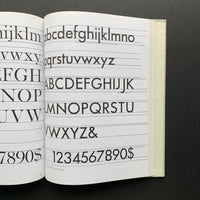 7890$
abcdefghijklmno
pqrstuvwxyz
ABCDEFGHIJK
LMNOPQRSTU
VWXYZ&
1234567890$